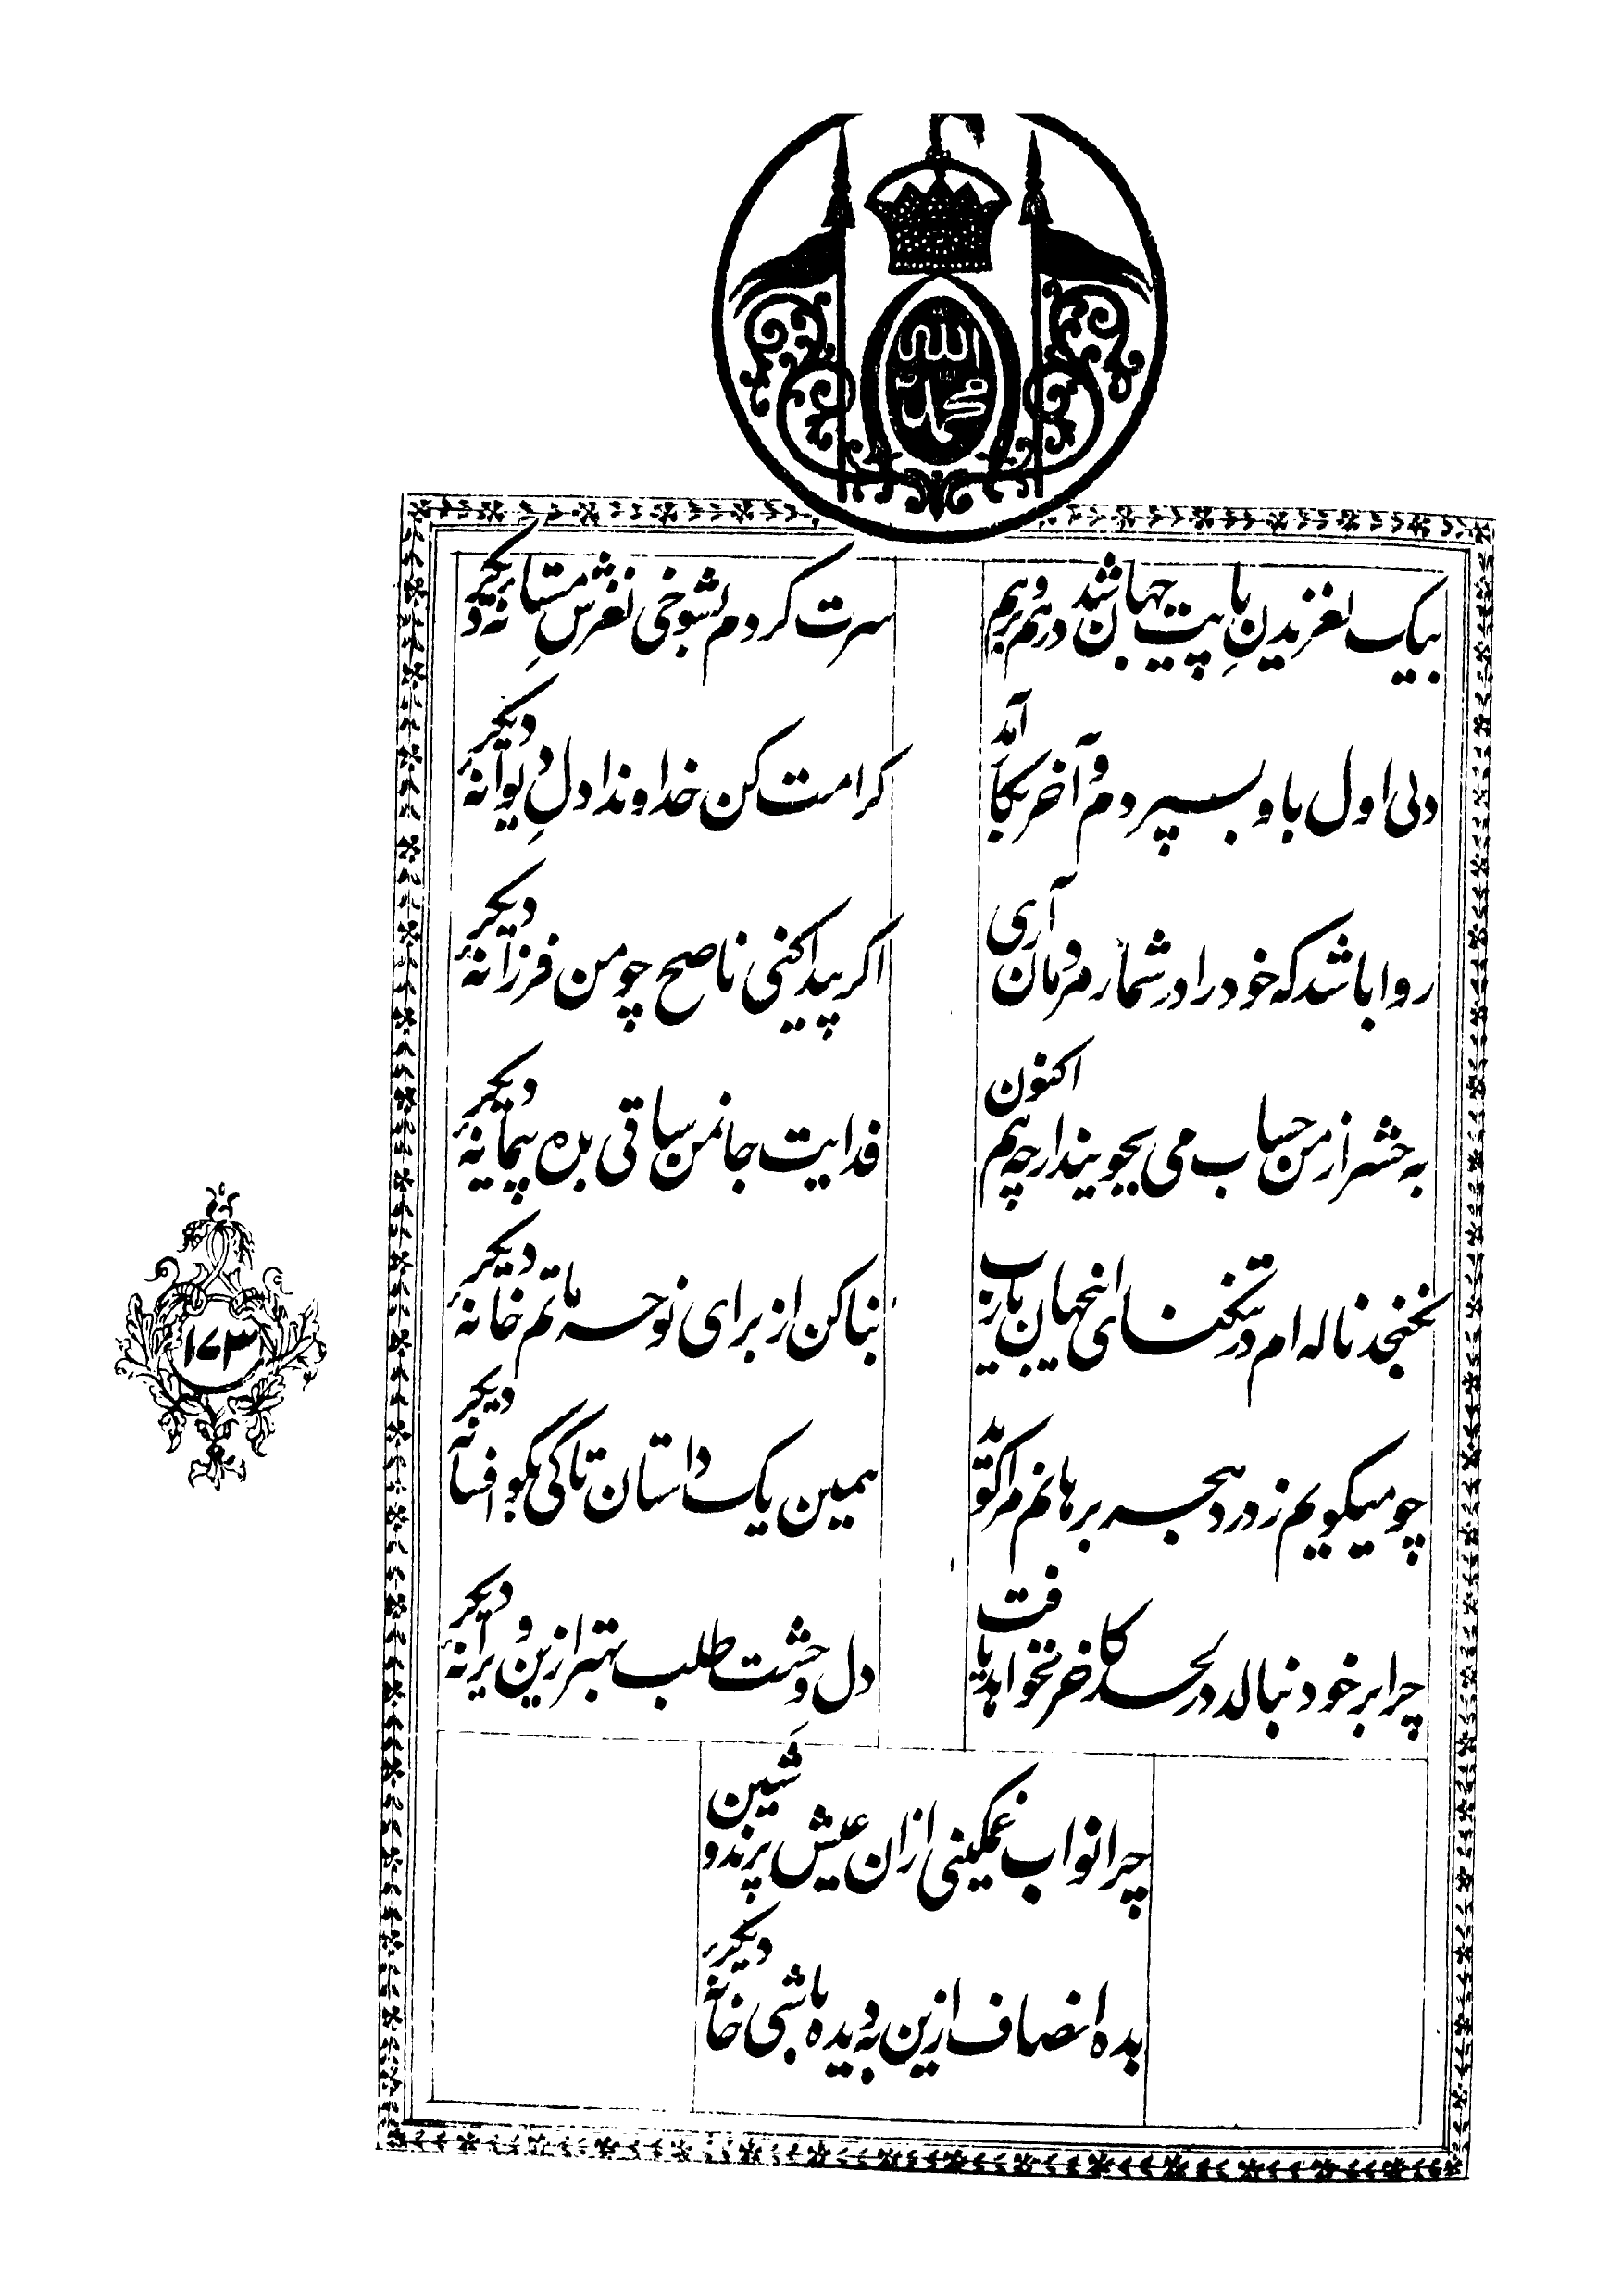 بیک لغزیدنِ پایت جهان شد درهم و برهم
سرت کردم بشوخی لغزشِ مستانهٔ دیکر
دلی اول باو بسپردم و آخر بکار آمد
کرامت کن خداوندا دلِ دیوانهٔ دیکر
روا باشد که خود را در شمار مردمان آری
اکر پیدا کنی ناصح چو من فرزانهٔ دیکر
به حشر از من حساب می بجویند ار چه هم اکنون
فدایت جانمن ساقی بده پیمانهٔ دیکر
نکنجد ناله ام در تنکنای اینجهان یارب
بنا کن از برای نوحه ماتم خانهٔ دیکر
چو میکویم ز درد هجر برهانم مرا کوید
همین یک داستان تا کی بکو افسانهٔ دیکر
چرا بر خود نبالد در لحد کاخر نخواهد یافت
دل وحشت طلب بهتر ازین ویرانهٔ دیکر
چرا نواب غمکینی ازان عیش پرندوشین
بده انصاف ازین به دیده باشی خانهٔ دیکر
۱۷۳